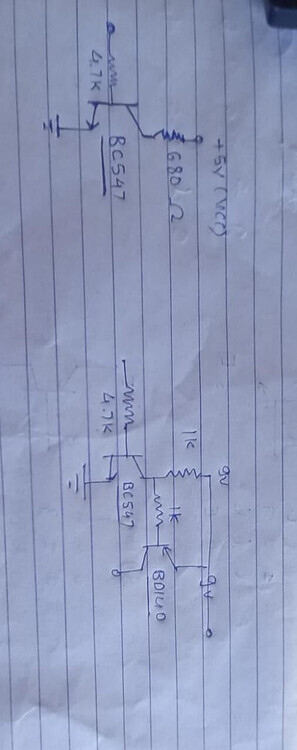 +5v (VCC)
680Ω
4.7K
BC547
9v
9v
1k
1k
4.7K
BC547
BD140